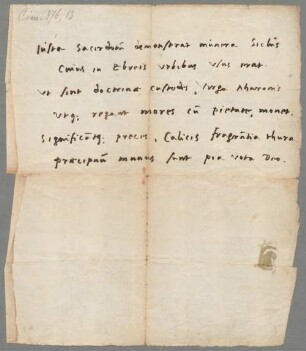 Cim. 376, 13
Iusta Sacerdotum demonstrat munera Siclus
Cuius in Ebreis urbibus usus erat
Ut sint doctrinae custodes, virga Aharonis
Utq; regant mores cum pietate, monet.
Significatq; preces, Calicis fragrantia thura
praecipuum munus sunt pia vota Deo.